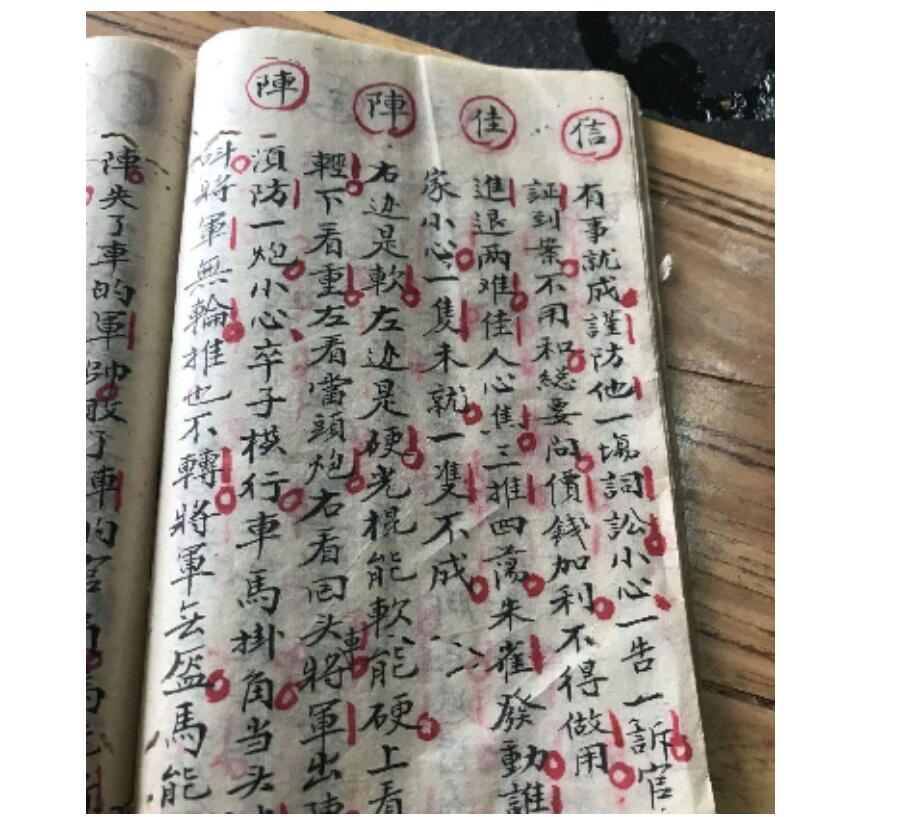 信
有事就成謹防他一塲詞訟小心一告一訴官
証到案不用和総要问價錢加利不得做用
佳
進退两难佳人心焦三推四蕩朱雀發動誰
家小心一隻未就一雙不成
陣
右边是軟左边是硬光棍能軟能硬上看
輕下看重左看當頭炮右看回头車將軍出陣
陣
湏防一炮小心卒子模行車馬掛角当头
將軍無輪推也不轉將軍無盔馬能
陣失了車的軍帥敗了車的官